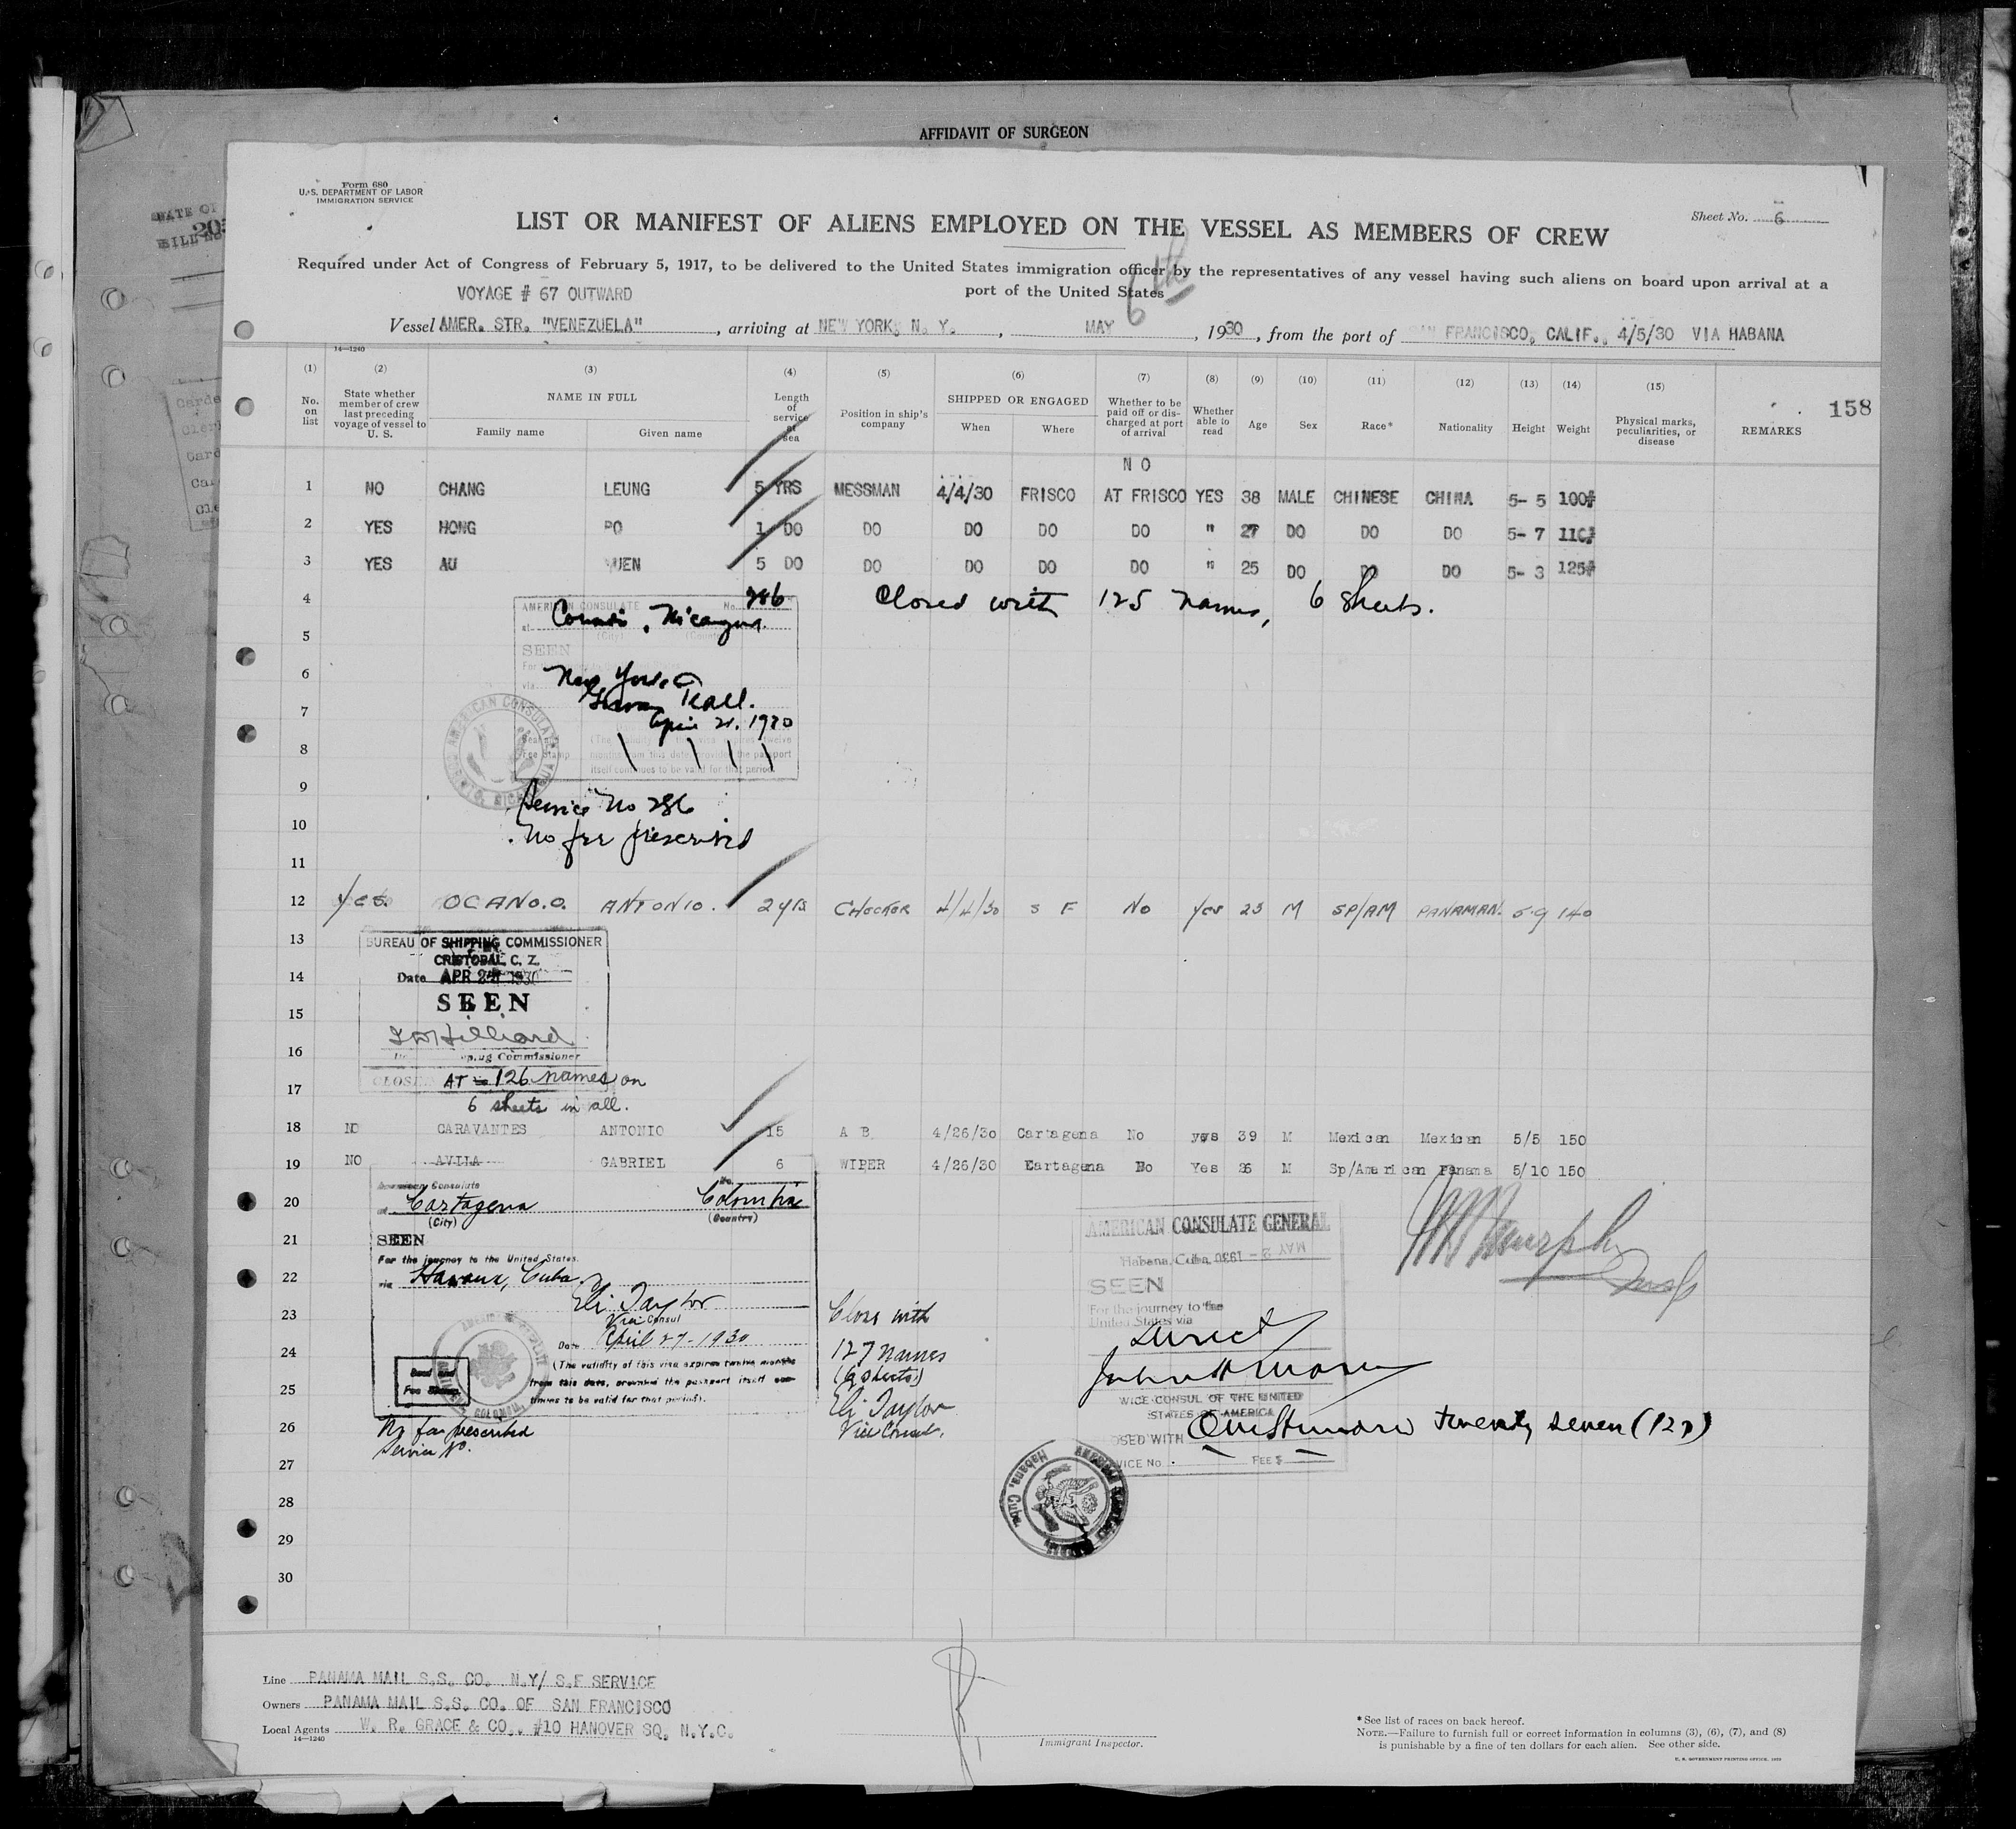 AFFIDAVIT OF SURGEON
Form 680
U. S. DEPARTMENT OF LABOR
IMMIGRATION SERVICE
Sheet No. 6
LIST OR MANIFEST OF ALIENS EMPLOYED ON THE VESSEL AS MEMBERS OF CREW
Required under Act of Congress of February 5, 1917, to be delivered to the United States immigration officer by the representatives of any vessel having such aliens on board upon arrival at a
port of the United States
6th
VOYAGE # 67 OUTWARD
Vessel AMER. STR. "VENEZUELA", arriving at NEW YORK, N. Y., MAY 6, 1930, from the port of SAN FRANCISCO, CALIF., 4/5/30 VIA HABANA
14—1240
158
(1) No. on list
(2) State whether member of crew last preceding voyage of vessel to U. S.
(3) NAME IN FULL Family name Given name
(4) Length of service at sea
(5) Position in ship's company
(6) SHIPPED OR ENGAGED When Where
(7) Whether to be paid off or discharged at port of arrival
(8) Whether able to read
(9) Age
(10) Sex
(11) Race*
(12) Nationality
(13) Height
(14) Weight
(15) Physical marks, peculiarities, or disease
REMARKS
N O
1 NO CHANG LEUNG 5 YRS MESSMAN 4/4/30 FRISCO AT FRISCO YES 38 MALE CHINESE CHINA 5- 5 100#
2 YES HONG PO 1 DO DO DO DO DO " 27 DO DO DO 5- 7 110#
3 YES AU YUEN 5 DO DO DO DO DO " 25 DO DO DO 5- 3 125#
4 Closed with 125 names, 6 Sheets.
AMERICAN CONSULATE No. 286
at Corinto, Nicaragua
(City) (Country)
5
SEEN
6
via New York
7
April 21, 1930
8
(The validity of this visa expires twelve
months from this date provided the passport
itself continues to be valid for that period)
9
Service No 286
10
No fee prescribed
11
12 yes. OCANO.O. ANTONIO. 2 yrs CHOCKER 4/4/30 S F No Yes 23 M SP/AM PANAMAN. 5-9 140
13
BUREAU OF SHIPPING COMMISSIONER
CRISTOBAL, C. Z.
14
Date APR 24 1930
15
SEEN
Hilliard
16
Shipping Commissioner
17
CLOSED AT 126 names on
6 sheets in all.
18 NO CARAVANTES ANTONIO 15 A B 4/26/30 Cartagena No yes 39 M Mexican Mexican 5/5 150
19 NO AVILA GABRIEL 6 WIPER 4/26/30 Cartagena No Yes 26 M Sp/American Panama 5/10 150
20
American Consulate No.
at Cartagena Colombia
(City) (Country)
21
SEEN
For the journey to the United States
22
via Havana, Cuba
23
Eli Taylor
Vice Consul
Date April 27-1930
24
(The validity of this visa expires twelve months
from this date, provided the passport itself con-
tinues to be valid for that period).
25
Seal and
Fee Stamp
26
No fee prescribed
Service No.
Close with
127 names
(6 sheets)
Eli Taylor
Vice Consul.
AMERICAN CONSULATE GENERAL
Habana, Cuba, MAY 2 - 1930
SEEN
For the journey to the
United States via
Direct
VICE CONSUL OF THE UNITED
STATES OF AMERICA
CLOSED WITH One Hundred twenty seven (127)
SERVICE No. FEE $
Murphy
Insp
27
28
29
30
Line PANAMA MAIL S.S. CO. N.Y/ S.F SERVICE
Owners PANAMA MAIL S.S. CO. OF SAN FRANCISCO
Local Agents W. R. GRACE & CO., #10 HANOVER SQ. N.Y.C.
14—1240
Immigrant Inspector.
* See list of races on back hereof.
NOTE.—Failure to furnish full or correct information in columns (3), (6), (7), and (8)
is punishable by a fine of ten dollars for each alien. See other side.